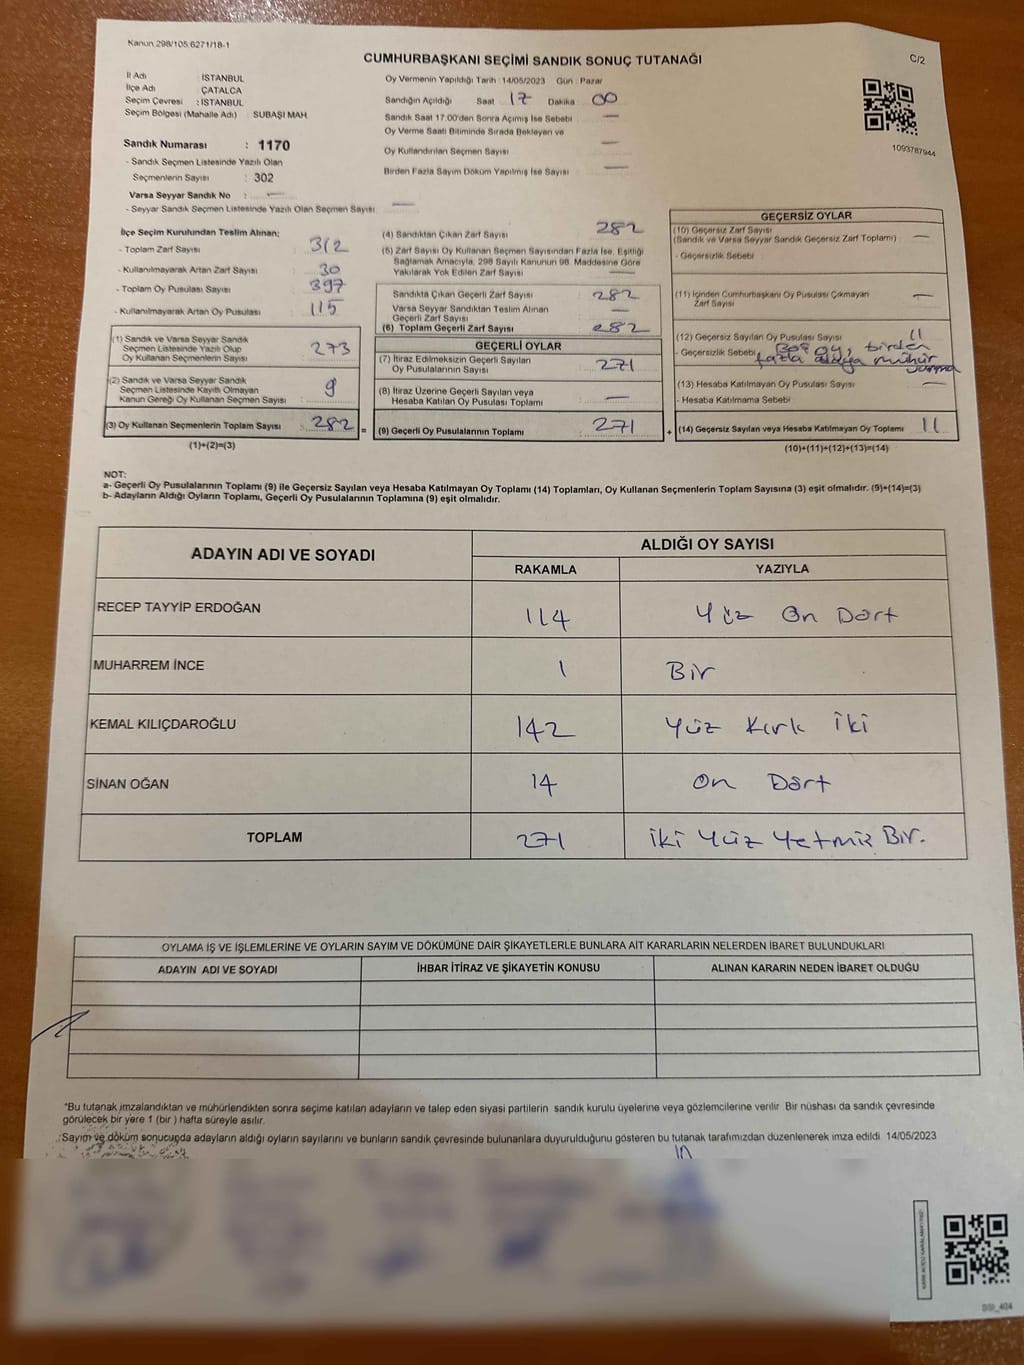 Kanun 298/105,6271/18-1
CUMHURBAŞKANI SEÇİMİ SANDIK SONUÇ TUTANAĞI
C/2
İl Adı : İSTANBUL
İlçe Adı : ÇATALCA
Seçim Çevresi : İSTANBUL
Seçim Bölgesi (Mahalle Adı) : SUBAŞI MAH.
Sandık Numarası : 1170
- Sandık Seçmen Listesinde Yazılı Olan
Seçmenlerin Sayısı : 302
Varsa Seyyar Sandık No : —
- Seyyar Sandık Seçmen Listesinde Yazılı Olan Seçmen Sayısı: —
Oy Vermenin Yapıldığı Tarih : 14/05/2023 Gün : Pazar
Sandığın Açıldığı Saat 17 Dakika 00
Sandık Saat 17:00'den Sonra Açımış İse Sebebi —
Oy Verme Saati Bitiminde Sırada Bekleyen ve
Oy Kullandırılan Seçmen Sayısı —
Birden Fazla Sayım Döküm Yapılmış İse Sayısı —
1093787944
İlçe Seçim Kurulundan Teslim Alınan;
- Toplam Zarf Sayısı : 312
- Kullanılmayarak Artan Zarf Sayısı : 30
- Toplam Oy Pusulası Sayısı : 397
- Kullanılmayarak Artan Oy Pusulası : 115
(1) Sandık ve Varsa Seyyar Sandık
Seçmen Listesinde Yazılı Olup
Oy Kullanan Seçmenlerin Sayısı : 273
(2) Sandık ve Varsa Seyyar Sandık
Seçmen Listesinde Kayıtlı Olmayan
Kanun Gereği Oy Kullanan Seçmen Sayısı : 9
(3) Oy Kullanan Seçmenlerin Toplam Sayısı : 282
(1)+(2)=(3)
(4) Sandıktan Çıkan Zarf Sayısı 282
(5) Zarf Sayısı Oy Kullanan Seçmen Sayısından Fazla İse, Eşitliği
Sağlamak Amacıyla, 298 Sayılı Kanunun 98. Maddesine Göre
Yakılarak Yok Edilen Zarf Sayısı —
Sandıkta Çıkan Geçerli Zarf Sayısı 282
Varsa Seyyar Sandıktan Teslim Alınan
Geçerli Zarf Sayısı —
(6) Toplam Geçerli Zarf Sayısı 282
GEÇERLİ OYLAR
(7) İtiraz Edilmeksizin Geçerli Sayılan
Oy Pusulalarının Sayısı 271
(8) İtiraz Üzerine Geçerli Sayılan veya
Hesaba Katılan Oy Pusulası Toplamı —
= (9) Geçerli Oy Pusulalarının Toplamı 271
GEÇERSİZ OYLAR
(10) Geçersiz Zarf Sayısı
(Sandık ve Varsa Seyyar Sandık Geçersiz Zarf Toplamı) —
- Geçersizlik Sebebi :
(11) İçinden Cumhurbaşkanı Oy Pusulası Çıkmayan
Zarf Sayısı —
(12) Geçersiz Sayılan Oy Pusulası Sayısı 11
- Geçersizlik Sebebi Boş oy, birden
fazla adaya mühür
(13) Hesaba Katılmayan Oy Pusulası Sayısı —
- Hesaba Katılmama Sebebi
+ (14) Geçersiz Sayılan veya Hesaba Katılmayan Oy Toplamı 11
(10)+(11)+(12)+(13)=(14)
NOT:
a- Geçerli Oy Pusulalarının Toplamı (9) ile Geçersiz Sayılan veya Hesaba Katılmayan Oy Toplamı (14) Toplamları, Oy Kullanan Seçmenlerin Toplam Sayısına (3) eşit olmalıdır. (9)+(14)=(3)
b- Adayların Aldığı Oyların Toplamı, Geçerli Oy Pusulalarının Toplamına (9) eşit olmalıdır.
ADAYIN ADI VE SOYADI
ALDIĞI OY SAYISI
RAKAMLA YAZIYLA
RECEP TAYYİP ERDOĞAN 114 Yüz On Dört
MUHARREM İNCE 1 Bir
KEMAL KILIÇDAROĞLU 142 Yüz Kırk İki
SİNAN OĞAN 14 On Dört
TOPLAM 271 İki Yüz Yetmiş Bir.
OYLAMA İŞ VE İŞLEMLERİNE VE OYLARIN SAYIM VE DÖKÜMÜNE DAİR ŞİKAYETLERLE BUNLARA AİT KARARLARIN NELERDEN İBARET BULUNDUKLARI
ADAYIN ADI VE SOYADI İHBAR İTİRAZ VE ŞİKAYETİN KONUSU ALINAN KARARIN NEDEN İBARET OLDUĞU
*Bu tutanak imzalandıktan ve mühürlendikten sonra seçime katılan adayların ve talep eden siyasi partilerin sandık kurulu üyelerine veya gözlemcilerine verilir. Bir nüshası da sandık çevresinde
görülecek bir yere 1 (bir ) hafta süreyle asılır.
Sayım ve döküm sonucunda adayların aldığı oyların sayılarını ve bunların sandık çevresinde bulunanlara duyurulduğunu gösteren bu tutanak tarafımızdan düzenlenerek imza edildi. 14/05/2023